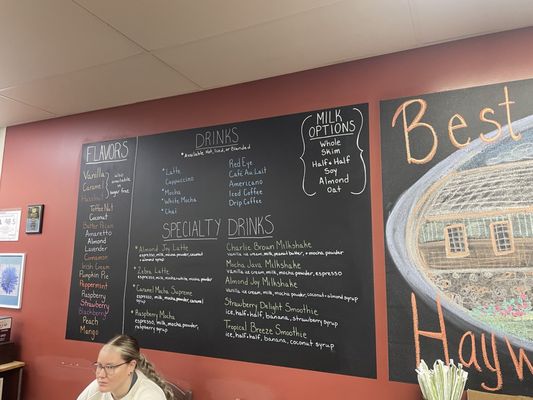 FLAVORS
Vanilla
Caramel
Hazelnut
also
available in
sugar free
Toffee Nut
Coconut
Butter Pecan
Amaretto
Almond
Lavender
Cinnamon
Irish Cream
Pumpkin Pie
Peppermint
Raspberry
Strawberry
Blackberry
Peach
Mango
DRINKS
*Available Hot, Iced, or Blended
*Latte
Cappuccino
*Mocha
*White Mocha
*Chai
Red Eye
Café Au Lait
Americano
Iced Coffee
Drip Coffee
MILK
OPTIONS
Whole
Skim
Half & Half
Soy
Almond
Oat
SPECIALTY DRINKS
*Almond Joy Latte
espresso, milk, mocha powder, coconut
& almond syrup
*Zebra Latte
espresso, milk, mocha + white, mocha powder
*Caramel Mocha Supreme
espresso, milk, mocha powder, caramel
syrup
*Raspberry Mocha
espresso, milk, mocha powder,
raspberry syrup
Charlie Brown Milkshake
vanilla ice cream, milk, peanut butter, + mocha powder
Mocha Java Milkshake
vanilla ice cream, milk, mocha powder, espresso
Almond Joy Milkshake
vanilla ice cream, milk, mocha powder, coconut + almond syrup
Strawberry Delight Smoothie
ice, half + half, banana, strawberry syrup
Tropical Breeze Smoothie
ice, half + half, banana, coconut syrup
Best
Hayw